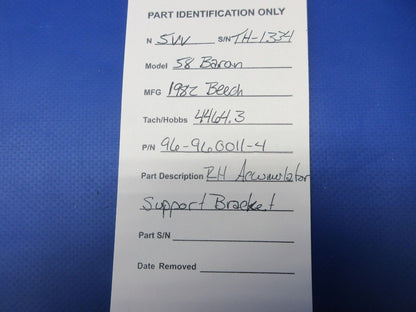 PART IDENTIFICATION ONLY
N 5VV S/N TH-1334
Model 58 Baron
MFG 1982 Beech
Tach/Hobbs 4464.3
P/N 96-960011-4
Part Description RH Accumulator
Support Bracket
Part S/N
Date Removed